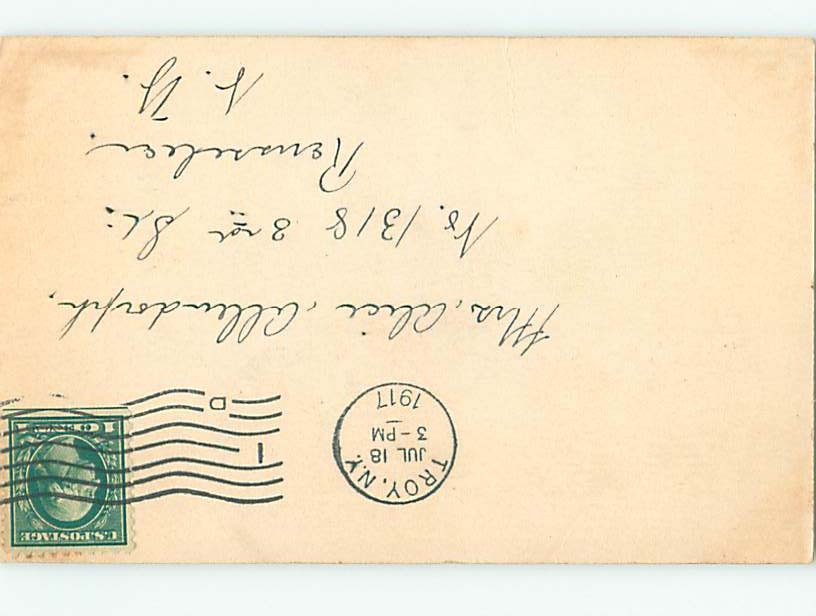 TROY, N.Y.
JUL 18
3 - PM
1917
1
D
U.S. POSTAGE
Mrs. Alice Allendorph,
No. 1318 3rd St.
Rensselaer
N. Y.